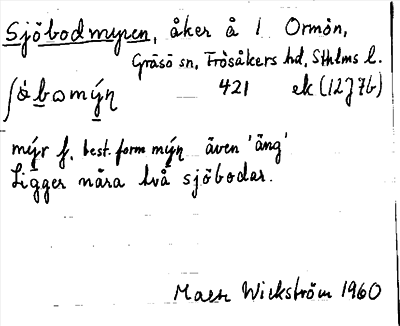 Sjöbodmyren, åker å 1 Ormön,
Gräsö sn, Frösåkers hd, Sthlms l.
421 ek (12J7b)
ʃǿbomýn
mýr f. best. form mýn även 'äng'
Ligger nära två sjöbodar.
Mats Wickström 1960